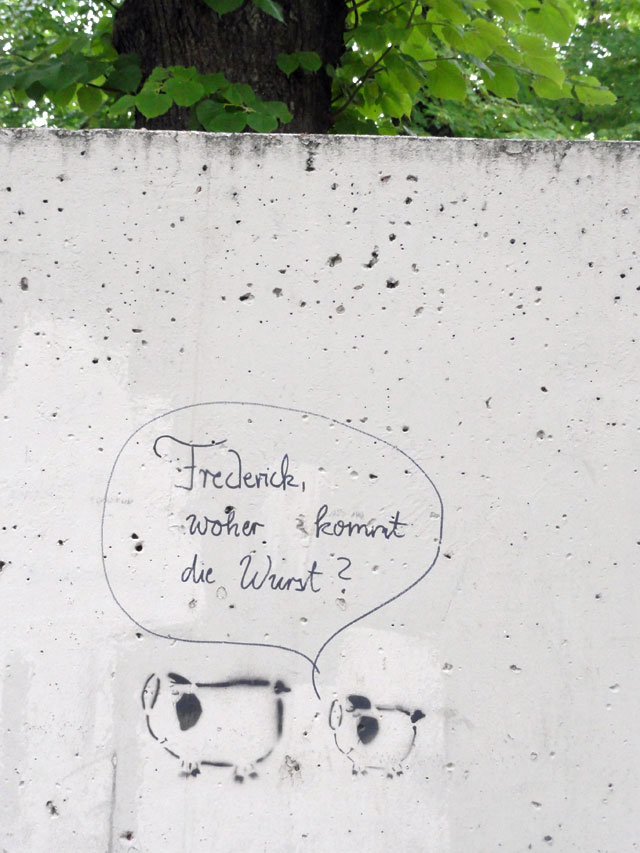 Frederick,
woher kommt
die Wurst?